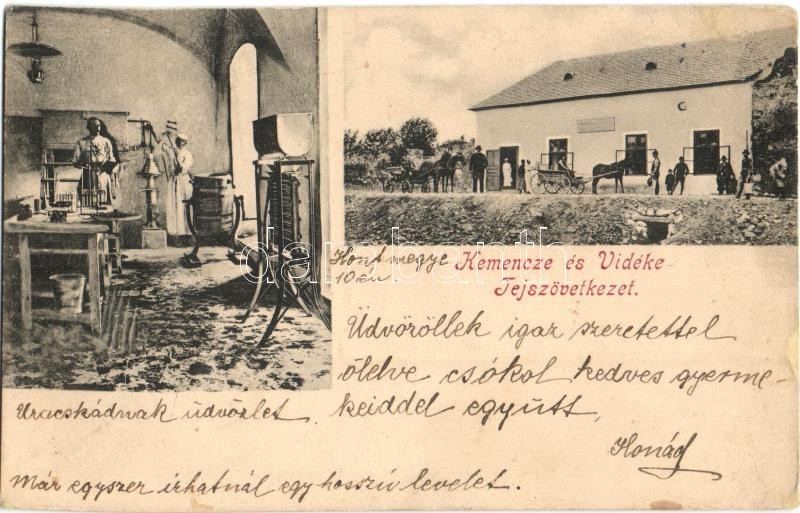 Kemencze és Vidéke
Tejszövetkezet.
Hont megye
10 én.
Üdvöröllek igaz szeretettel
ölelve csókol kedves gyerme-
keiddel együtt,
Uracskádnak üdvözlet.
Már egyszer írhatnál egy hosszú levelet.
darabanth